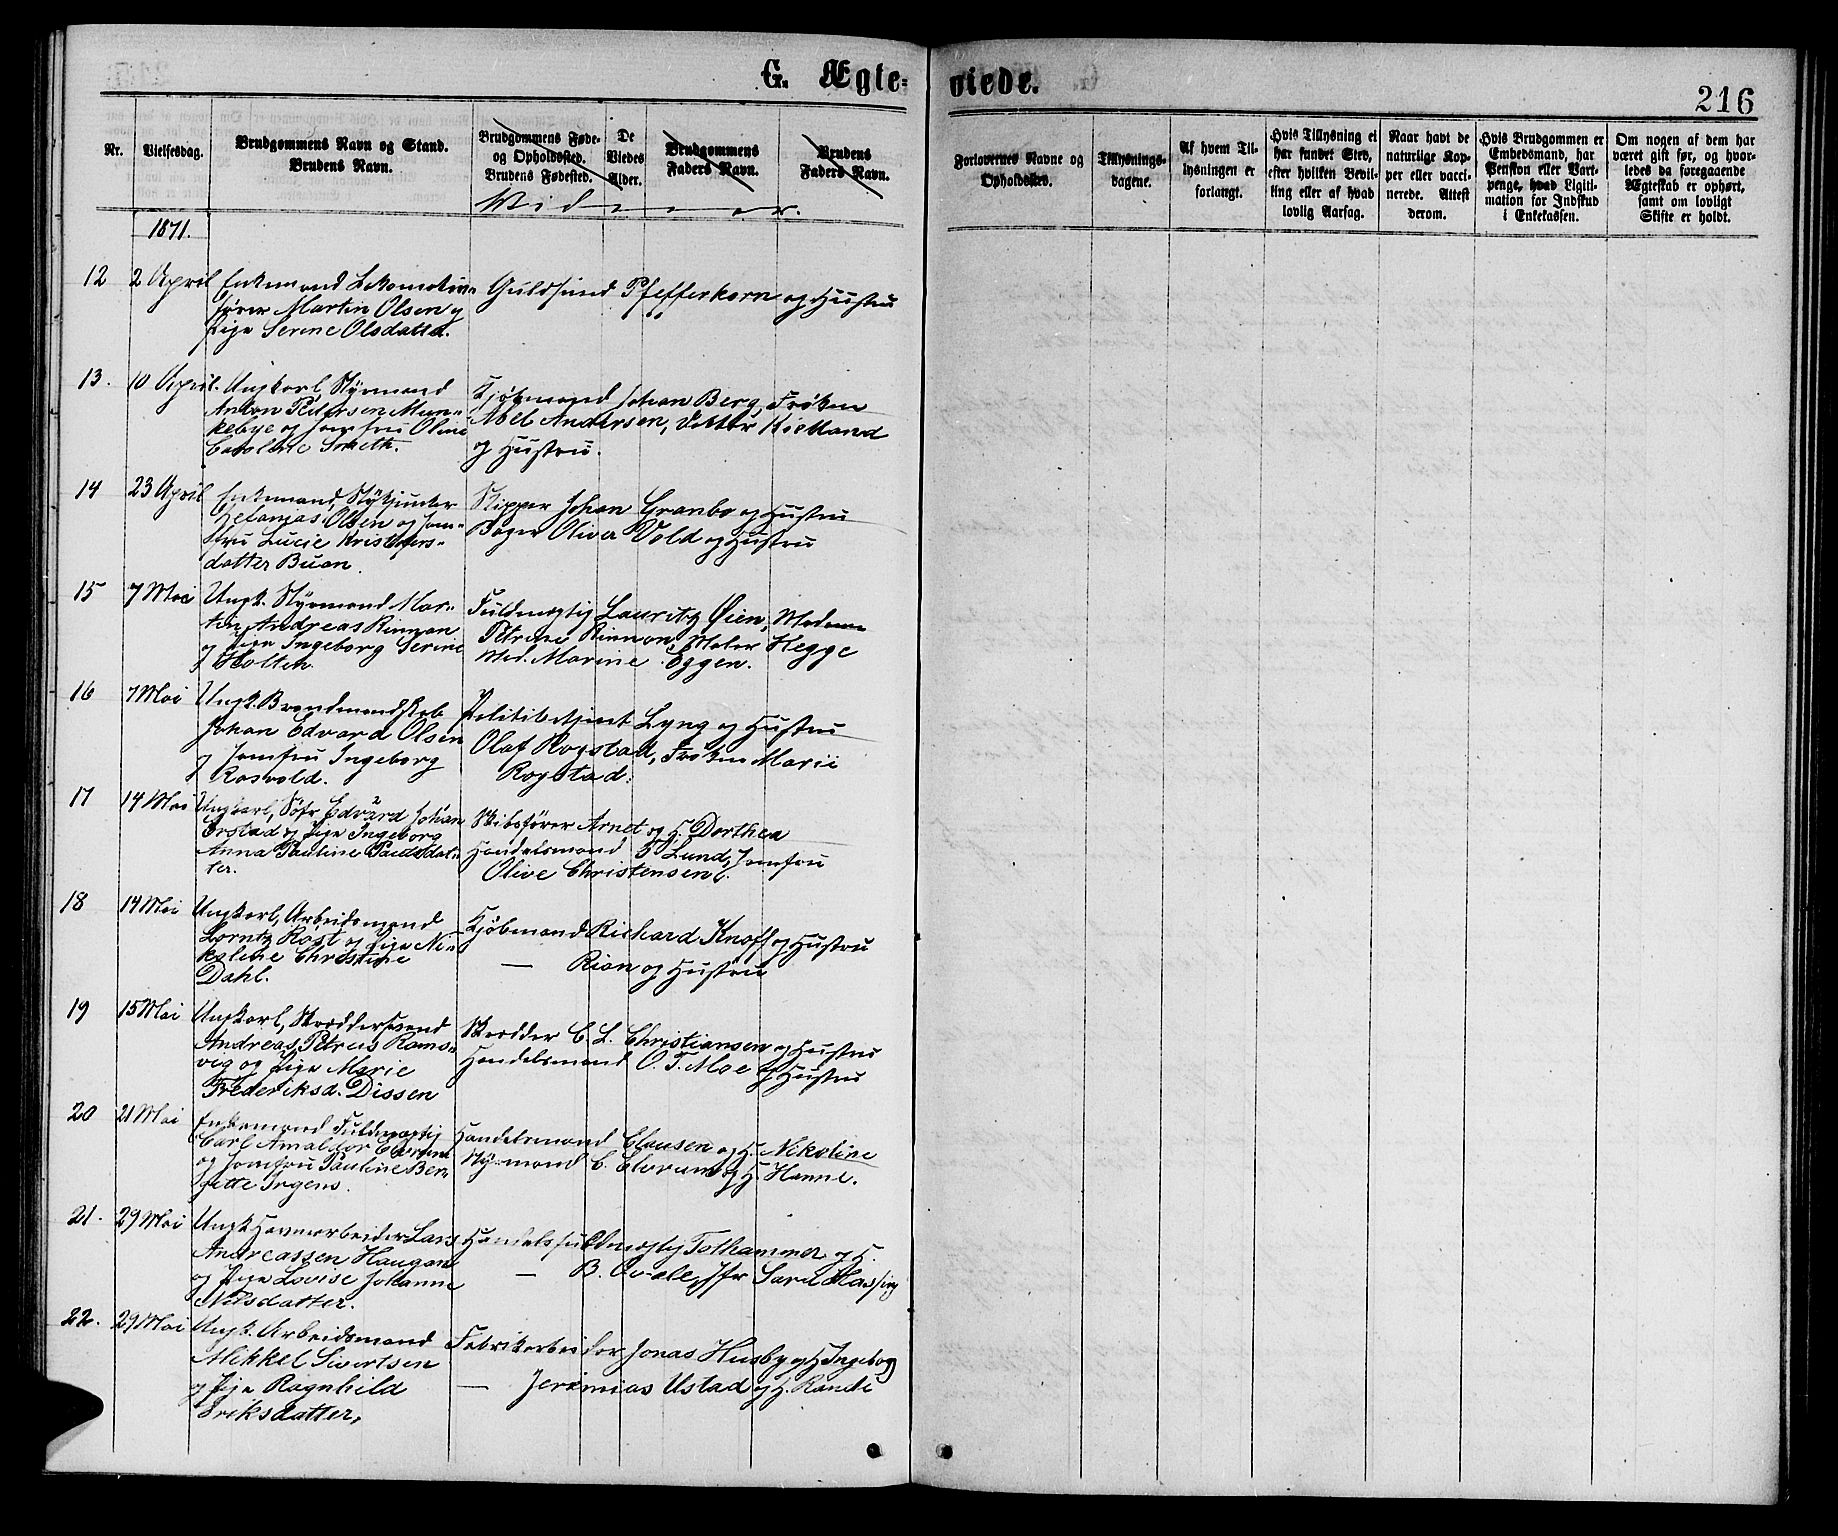 G. Ægte-
viede.
216
Nr.
Vielsesdag.
Brudgommens Navn og Stand.
Brudens Navn.
Brudgommens Føde-
og Opholdssted.
Brudens Fødested.
De
Viedes
Alder.
Brudgommens
Faders Navn.
Brudens
Faders Navn.
Forlovernes Navne og
Opholdssted.
Tillysnings-
dagene.
Af hvem Til-
lysningen er
forlangt.
Hvis Tillysning ei
har fundet Sted,
efter hvilken Bevil-
ling eller af hvad
lovlig Aarsag.
Naar havt de
naturlige Kop-
per eller vacci-
nerede. Attest
derom.
Hvis Brudgommen er
Embedsmand, har
Pension eller Vart-
penge, hvad Ligiti-
mation for Indskud
i Enkekassen.
Om nogen af dem har
været gift før, og hvor-
ledes da foregaaende
Ægteskab er ophørt,
samt om lovligt
Skifte er holdt.
Vidner.
1871.
12 2 April Enkemand Lokomotiv-
fører Martin Olsen og
Pige Serine Olsdatter.
Guldsmed Pfefferkorn og Hustru
13. 10 April. Ungkarl, Styrmand
Anton Pedersen Mun-
kebye og Jomfru Oline
Caroline Smeth.
Kjøbmand Johan Berg, Frøken
Abel Andersen, Doktor Kielland
og Hustru.
14 23 April Enkemand, Stykjunker
Zefanias Olsen og Jom-
fru Lucie Kristofers-
datter Buan.
Skipper Johan Granbo og Hustru
Bager Oliver Vold og Hustru
15 7 Mai Ungk. Styrmand Mar-
tin Andreas Rinnan
og Pige Ingeborg Serine
Holten.
Fuldmægtig Lauritz Øien, Madame
Petrine Rinnan, Maler Hegge
Mad. Marine Eggen.
16 7 Mai Ungk. Brandmandskab
Johan Edvard Olsen
og Jomfru Ingeborg
Rosvold.
Politibetjent Lyng og Hustru
Olaf Rogstad, Frøken Marie
Rogstad.
17 14 Mai Ungkarl, Søfr Edvard Johan
Erstad og Pige Ingeborg
Anna Pauline Paulsdat-
ter.
Skibsfører Arnet og H. Dorthea
Handelsmand Lund, Jomfru
Olive Christensen.
18 14 Mai Ungkarl, Arbeidsmand
Lorntz Rost og Pige Ni-
koline Christine
Dahl.
Kjøbmand Richard Knoff og Hustru
— Rian og Hustru
19 15 Mai Ungkarl, Skræddersvend
Andreas Petrus Rams-
vig og Pige Marie
Frederiksd. Dissen
Skrædder C. L. Christiansen og Hustru
Handelsmand O. T. Moe og Hustru
20 21 Mai Enkemand Fuldmægtig
Carl Amaldor
og Jomfru Pauline Ber-
gette Irgens.
Handelsmand Clausen og H. Nikoline
Styrmand C. og H. Hanne.
21. 29 Mai Ungk Havnearbeider Lars
Andreassen Haugan
og Pige Lovise Johanne
Nilsdatter.
Handelsfuldmægtig Folhammer og H.
— B. Jfr Sara Hassing
22. 29 Mai Ungk. Arbeidsmand
Mikkel Sivertsen
og Pige Ragnhild
Eriksdatter,
Fabrikarbeider Jonas Husby og H Ingeborg
— Jeremias Ustad og H. Randi